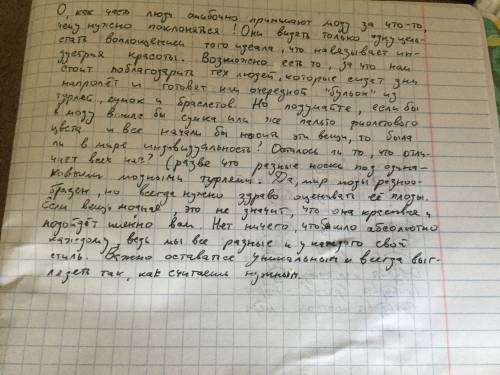 О, как часто люди ошибочно принимают моду за что-то,
чему нужно поклоняться! Они видят только одну цель -
стать воплощением того идеала, что навязывает ин-
дустрия красоты. Возможно есть то, за что нам
стоит поблагодарить тех людей, которые сидят дни
напролёт и готовят нам очередной "бульон" из
туфлей, сумок и браслетов. Но подумайте, если бы
в моду вошли бы сумка или же пальто фиолетового
цвета и все начали бы носить эти вещи, то была
ли в мире индивидуальность? Осталось ли то, что отли-
чает всех нас? (разве что разные носки под одина-
ковыми модными туфлями. Да, мир моды разно-
бразен, но всегда нужно здраво оценивать её плоды.
Если вещь модная это не значит, что она красивая и
подойдёт именно вам. Нет ничего, что шло абсолютно
каждому ведь мы все разные и у каждого свой
стиль. Важно оставаться уникальным и всегда выг-
лядеть так, как считаешь нужным.